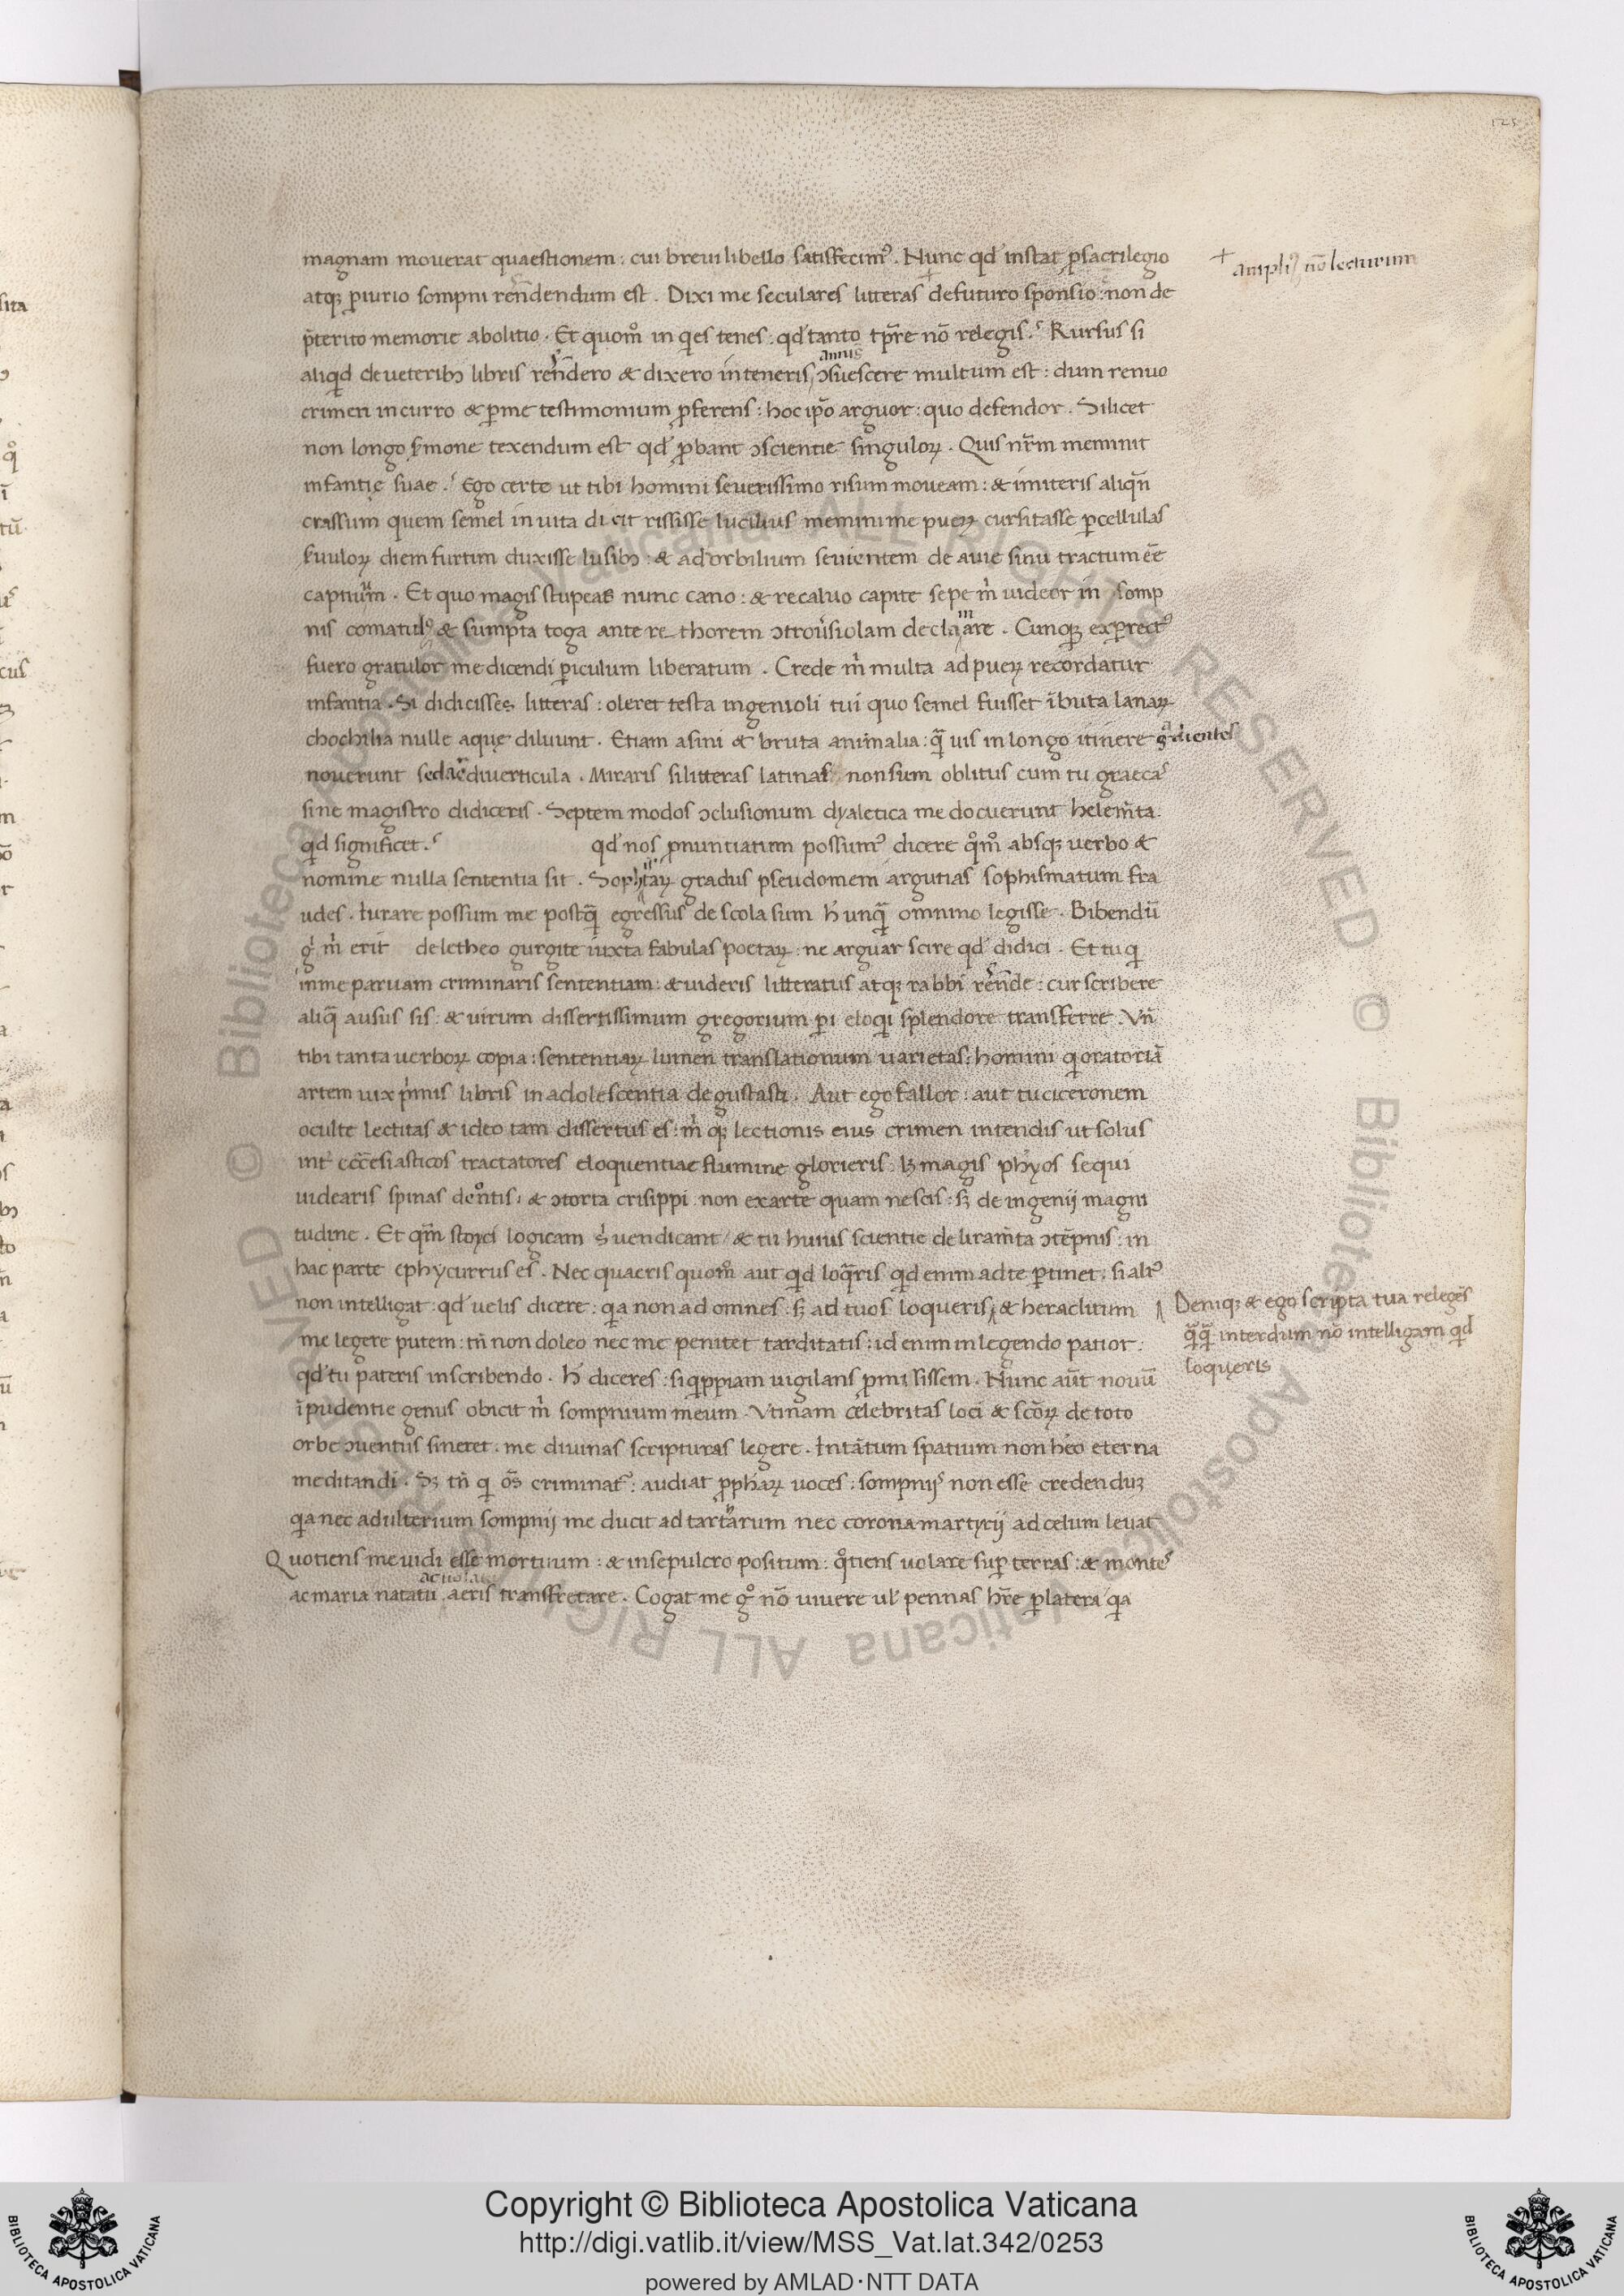 125
magnam mouerat quaestionem : cui breui libello satisfecim᾽ . Nunc qd᾽ instat ꝓ sacrilegio
atqꝫ ꝑiurio sompni ren̄dendum est . Dixi me seculares litteras + de futuro sponsio : non de
p̄terito memorie abolitio . Et quom̊ in q̇es tenes : qd᾽ tanto tp̄re nō relegis . Rursus si
aliq̇d de ueteribꝫ libris ren̄dero & dixero in teneris annis ↄsuescere multum est : dum renuo
crimen incurro & ꝑ me testimonium ꝓferens : hoc ip̄o arguor : quo defendor . Silicet
non longo s̄mone texendum est qd᾽ ꝓbant ↄscientie singuloꝝ . Quis nr̄m meminit
infantię suae . Ego certe ut tibi homini seuerissimo risum moueam : & imiteris aliqn̄
crassum quem semel in uita dicit rississe lucilius memini me pueꝝ cursitasse ꝑ cellulas
s̄uuloꝝ diem furtim duxisse lusibꝫ : & ad orbilium seuientem de auie sinu tractum eē
captiuum . Et quo magis stupeas nunc cano : & recaluo capite sepe m̓ uideor in somp
nis comatul᾽ & sumpta toga ante rethorem ↄtrou̓siolam declamare . Cunqꝫ exꝑrect᾽
fuero gratulor me dicendi ꝑiculum liberatum . Crede m̓ multa ad pueꝝ recordatur
infantia . Si didicisses litteras : oleret testa ingenioli tui quo semel fuisset ībuta lanaꝝ
chochilia nulle aquę diluunt . Etiam asini & bruta animalia : q̄ uis in longo itinere gᵃdientes
nouerunt sedae diuerticula . Miraris si litteras latinas non sum oblitus cum tu graecas
sine magistro didiceris . Septem modos ↄclusionum dyaletica me docuerunt helem̄ta .
qd significet . qd᾽ nos ꝓnuntiatum possum᾽ dicere q̊m̊ absqꝫ uerbo &
nomine nulla sententia sit . gradus pseudomem argutias sophismatum fra
udes . Iurare possum me postq̄ egressus de scola sum h̓ unq̄ omnino legisse . Bibendū
g̓ m̓ erit de letheo gurgite iuxta fabulas poetaꝝ : ne arguar scire qd᾽ didici . Et tu q̇
in me paruam criminaris sententiam : & uideris litteratus atqꝫ rabbi ren̄de : cur scribere
aliq̄ ausus sis : & uirum dissertissimum gregorium ꝑi eloq̇ splendore transferre . Vn̄
tibi tanta uerboꝝ copia : sententiaꝝ lumen translationum uarietas : homini q̇ oratoriā
artem uix p̓mis libris in adolescentia degustasti . Aut ego fallor : aut tu ciceronem
oculte lectitas & ideo tam dissertus es : m̓ qꝫ lectionis eius crimen intendis ut solus
int̓ eccl̄esiasticos tractatores eloquentiae flumine glorieris : lꝫ magis phy̓os sequi
uidearis spinas & ↄtorta crisippi non ex arte quam nescis : sꝫ de ingenij magni
tudine . Et qm̄ stoyci logicam s̓ uendicant & tu huius scientie deliram̄ta ↄtēpnis : in
hac parte ephycurrus es . Nec quaeris quom̊ aut q̇d loq̄ris q̇d enim ad te ꝑtinet : si alt᾽
non intelligat : qd᾽ uelis dicere : q̇a non ad omnes : sꝫ ad tuos loqueris & heraclitum
me legere putem : tn̄ non doleo nec me penitet tarditatis : id enim in legendo patior :
qd᾽ tu pateris in scribendo . h̓ dicerēs : si q̇ppiam uigilans ꝓmisissem . Nunc aūt nouū
īpudentie genus obicit m̓ sompnium meum . Vtinam celebritas loci & scōꝝ de toto
orbe ↄuentus sineret : me diuinas scripturas legere . Intātum spatium non hēo eterna
meditandi . Sꝫ tn̄ q̇ os̄ criminat᾽ : audiat ꝓphaꝝ uoces : sompnijs non esse credenduꝫ
q̇a nec adulterium sompnij me ducit ad tartarum nec corona martyrij ad celum leuat
Quotiens me uidi esse mortuum : & in sepulcro positum : q̊tiens uolare suꝑ terras : & montes
ac maria natatu ac uolatu aeris transfretare . Cogat me g̊ nō uiuere ul᾽ pennas hr̄e ꝑ latera q̇a
+ ampli᾽ nō lecturum
Deniqꝫ & ego scripta tua relegēs
q̄q̄ interdum nō intelligam q̇d
loqueris
Copyright © Biblioteca Apostolica Vaticana
http://digi.vatlib.it/view/MSS_Vat.lat.342/0253
powered by AMLAD·NTT DATA
BIBLIOTECA APOSTOLICA VATICANA
BIBLIOTECA APOSTOLICA VATICANA
© Biblioteca Apostolica Vaticana ALL RIGHTS RESERVED © Biblioteca Apostolica Vaticana ALL RIGHTS RESERVED